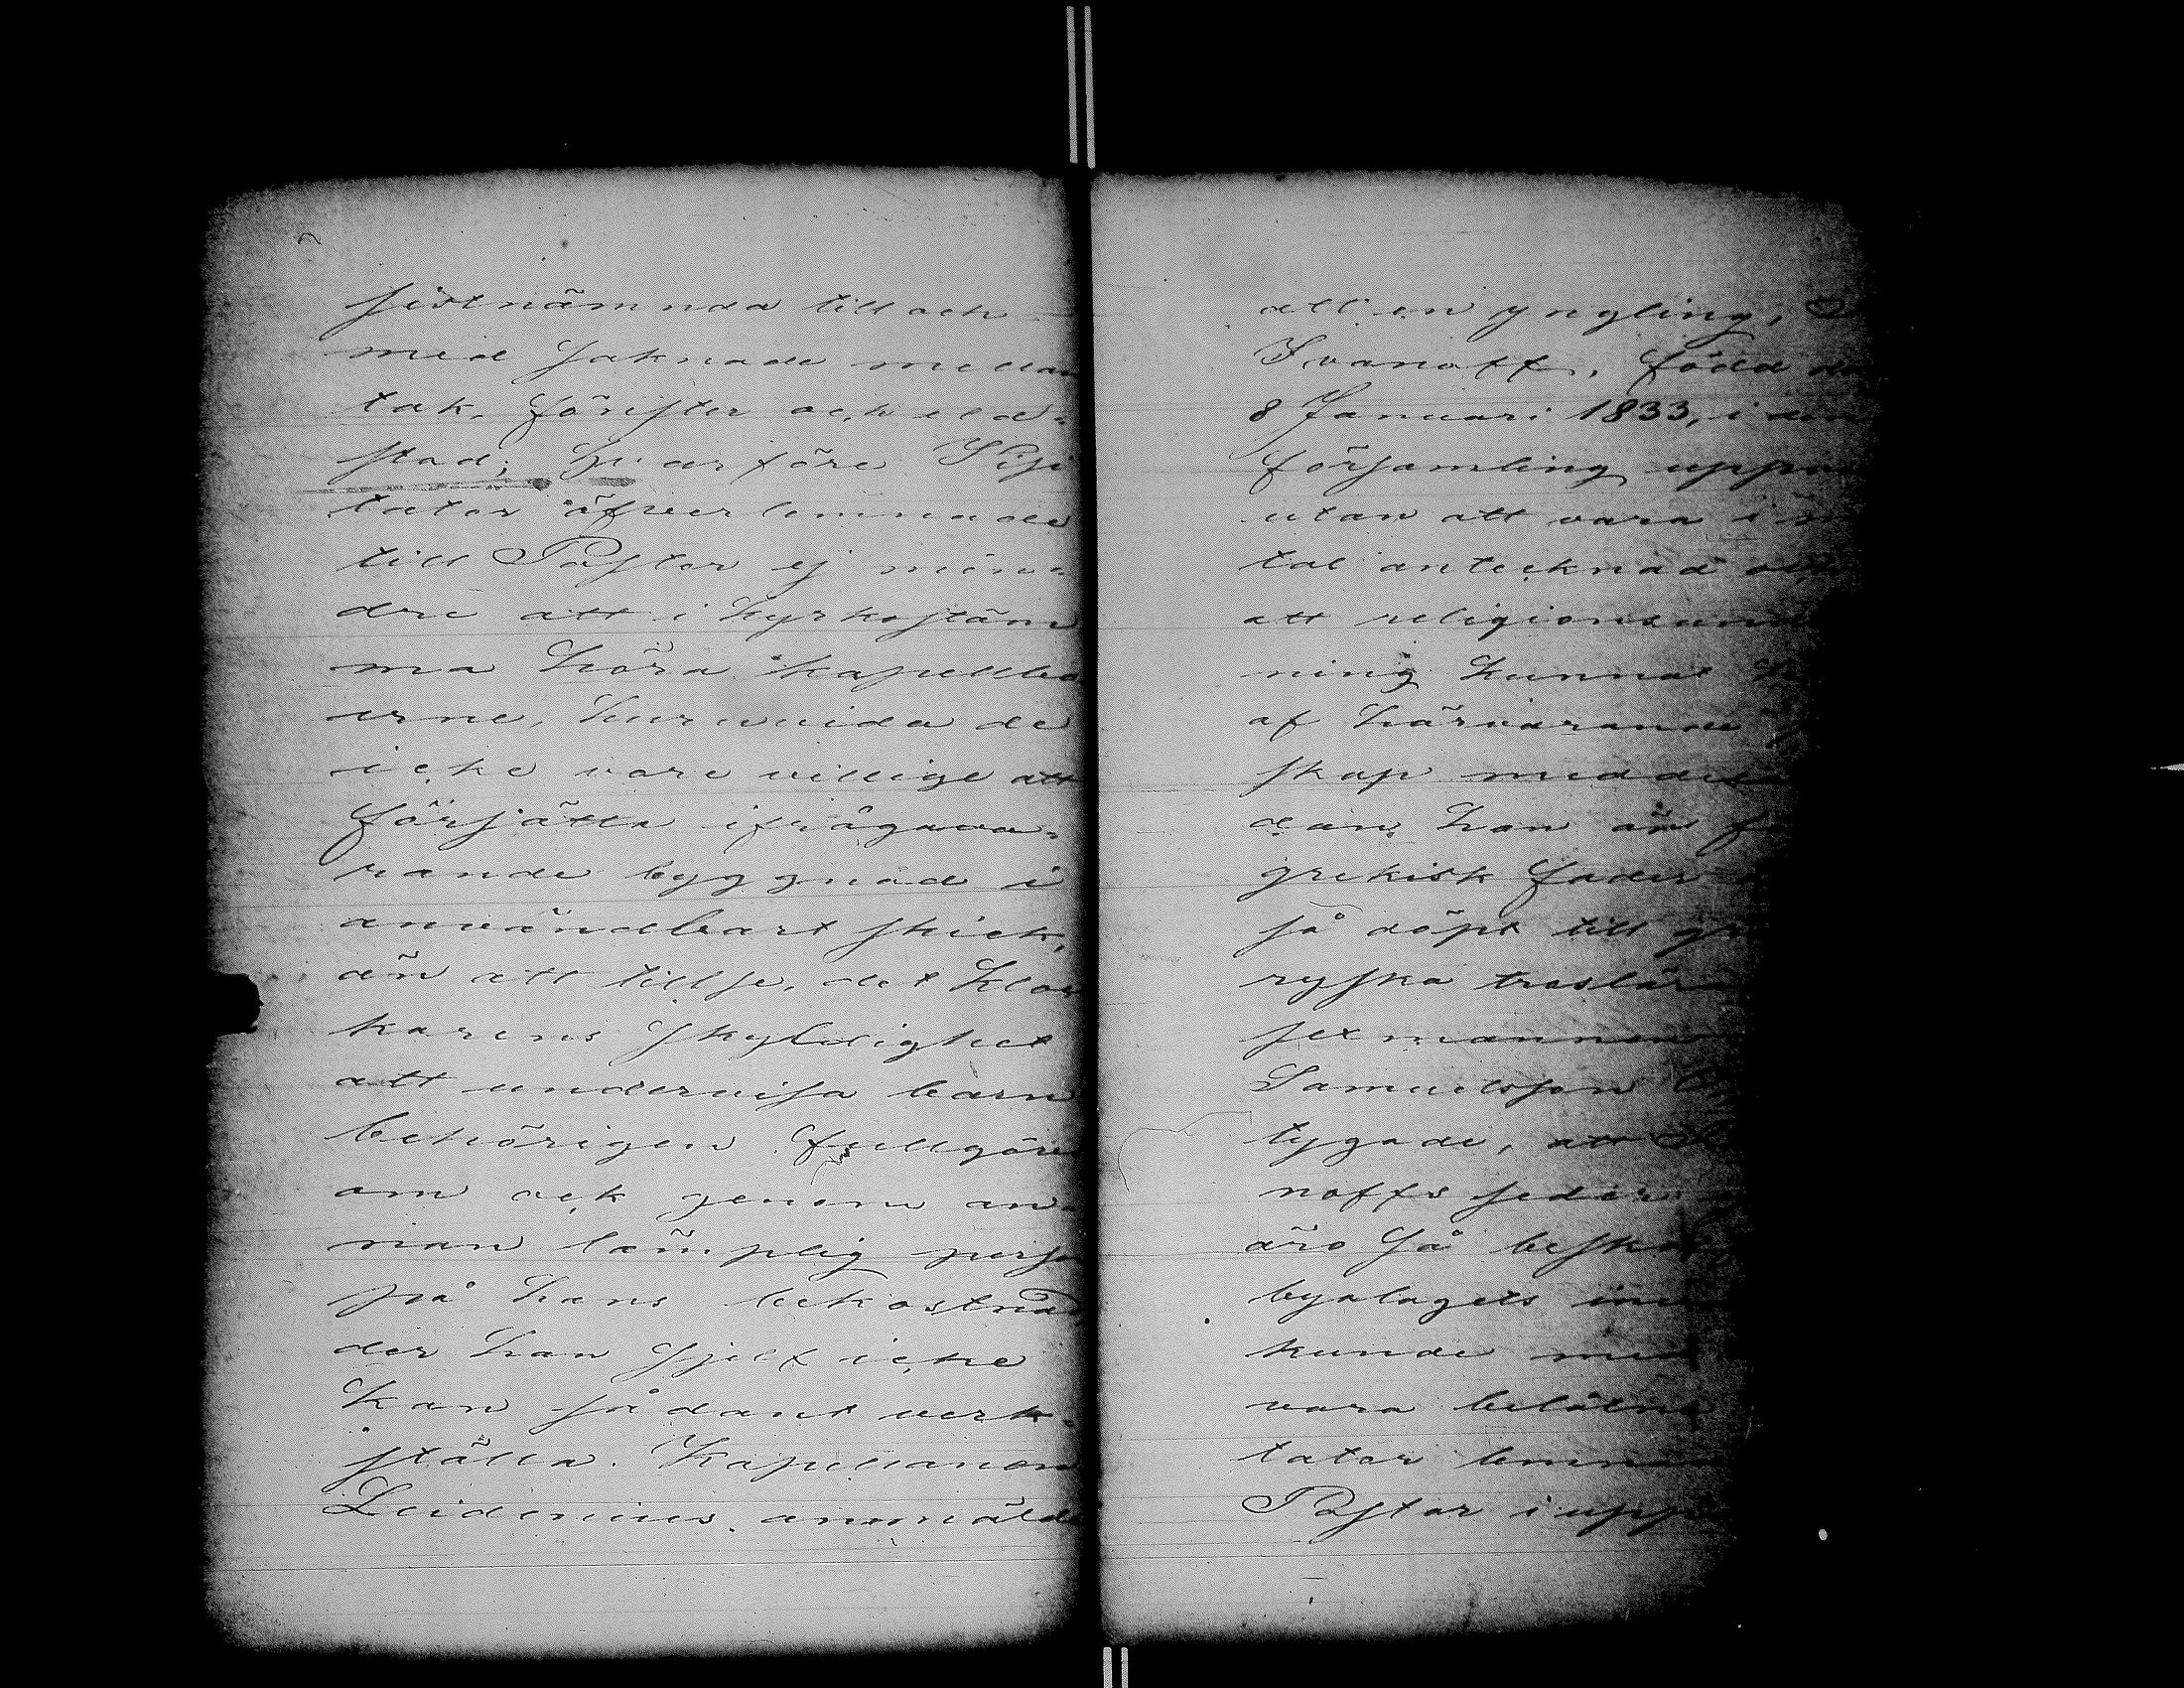 sistnämnda till och
med saknade mellan
tak, fönster och eld-
stad; Hvarföre Visi
tator öfverlemnade
till Pastor ej min-
dre att i kyrkostäm
ma höra kapellbo
erne, huruvida de
icke vore villige att
försätta ifrågava-
rande byggnad i
användbart skick,
än att tillse, det Kloc
karens skyldighet
att undervisa barn
behörigen fullgöres
om ock genom an-
nan lämplig perso
på hans bekostnad,
der han sjelf icke
kan sådant verk-
ställa. Kapellanen
Leidenius anmälde
att en yngling,
Ivanoff, född de
8 Januari 1833, i den
församling uppvu
utan att vara i
tal antecknad och
att religionsund
ning kunnat
af härvarande
skap meddela
dan han är f
grekisk fader
så döpt till gre
ryska troslära
sexmannen
Samuelsson be
tygade, att
noffs seder
äro så beska
byalagets inne
kunde med
vara belåtna
tator lemnade
Pastor i upp